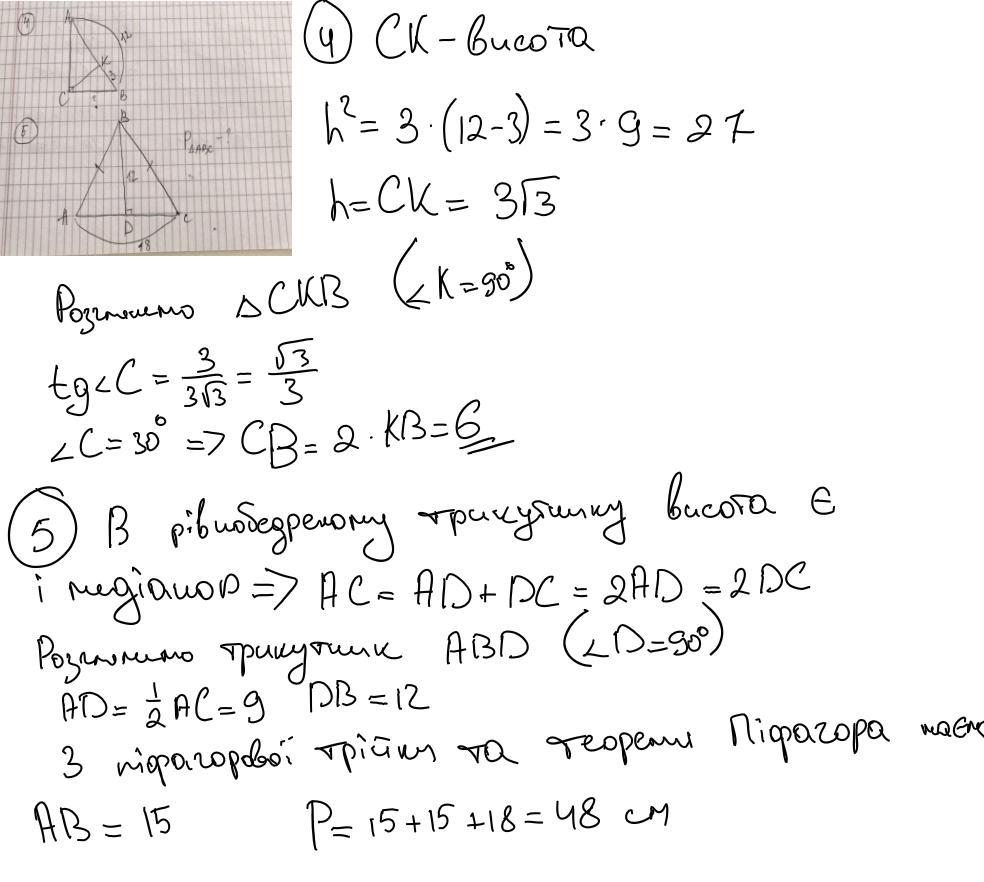 4
A
12
K
3
C
B
?
5
B
P△ABC - ?
12
A
D
C
18
4 CK - висота
h² = 3 · (12-3) = 3 · 9 = 27
h = CK = 3√3
Розглянемо △CKB (∠K = 90°)
tg∠C = 3/3√3 = √3/3
∠C = 30° => CB = 2 · KB = 6
5 В рівнобедреному трикутнику висота є
і медіаною => AC = AD + DC = 2AD = 2DC
Розглянемо трикутник ABD (∠D = 90°)
AD = 1/2 AC = 9 DB = 12
З піфагорової трійки та теореми Піфагора маєм
AB = 15 P = 15 + 15 + 18 = 48 см